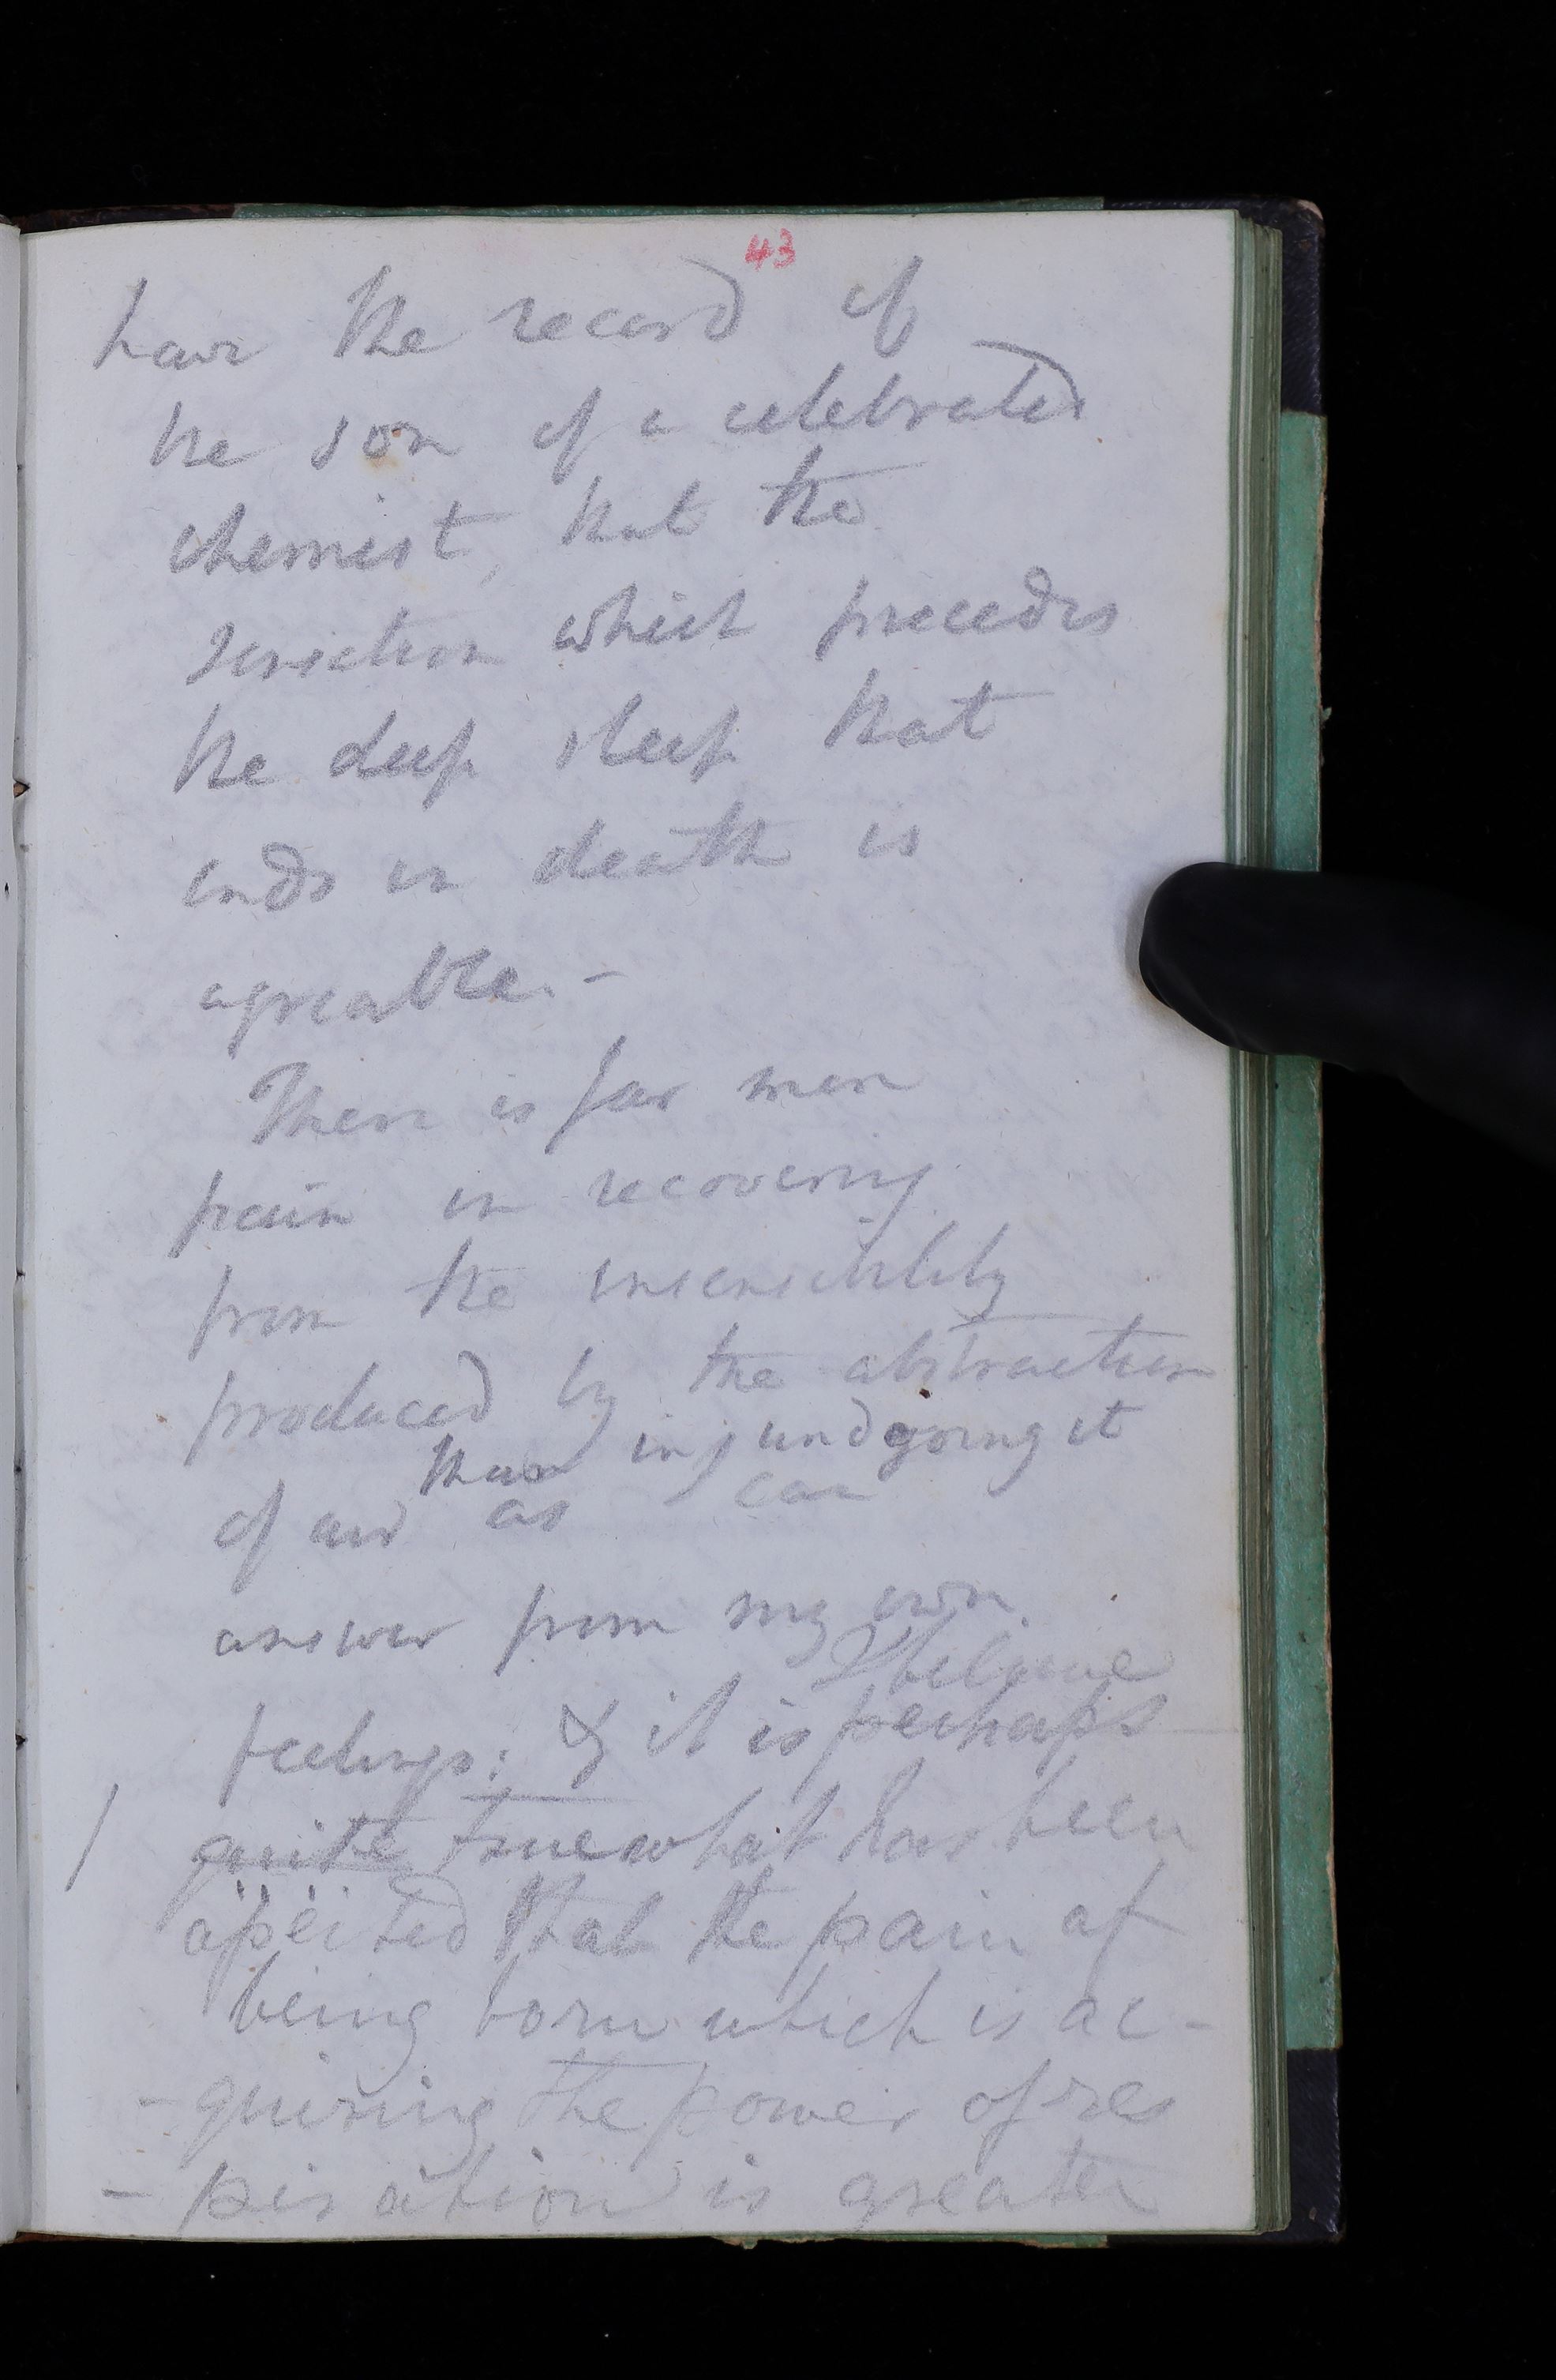 43
have the record of
the son of a celebrated
chemist, that the
sensation which precedes
the deep sleep that
ends in death is
agreable. -
There is far more
pain in recovering
from the insensibility
produced by the abstraction
than in undgoing it
of air as I can
answer from my own
I believe
feelings: & it is perhaps
quite true what has been
that the pain of
being born which is ac-
- quiring the power of res
- piration is greater